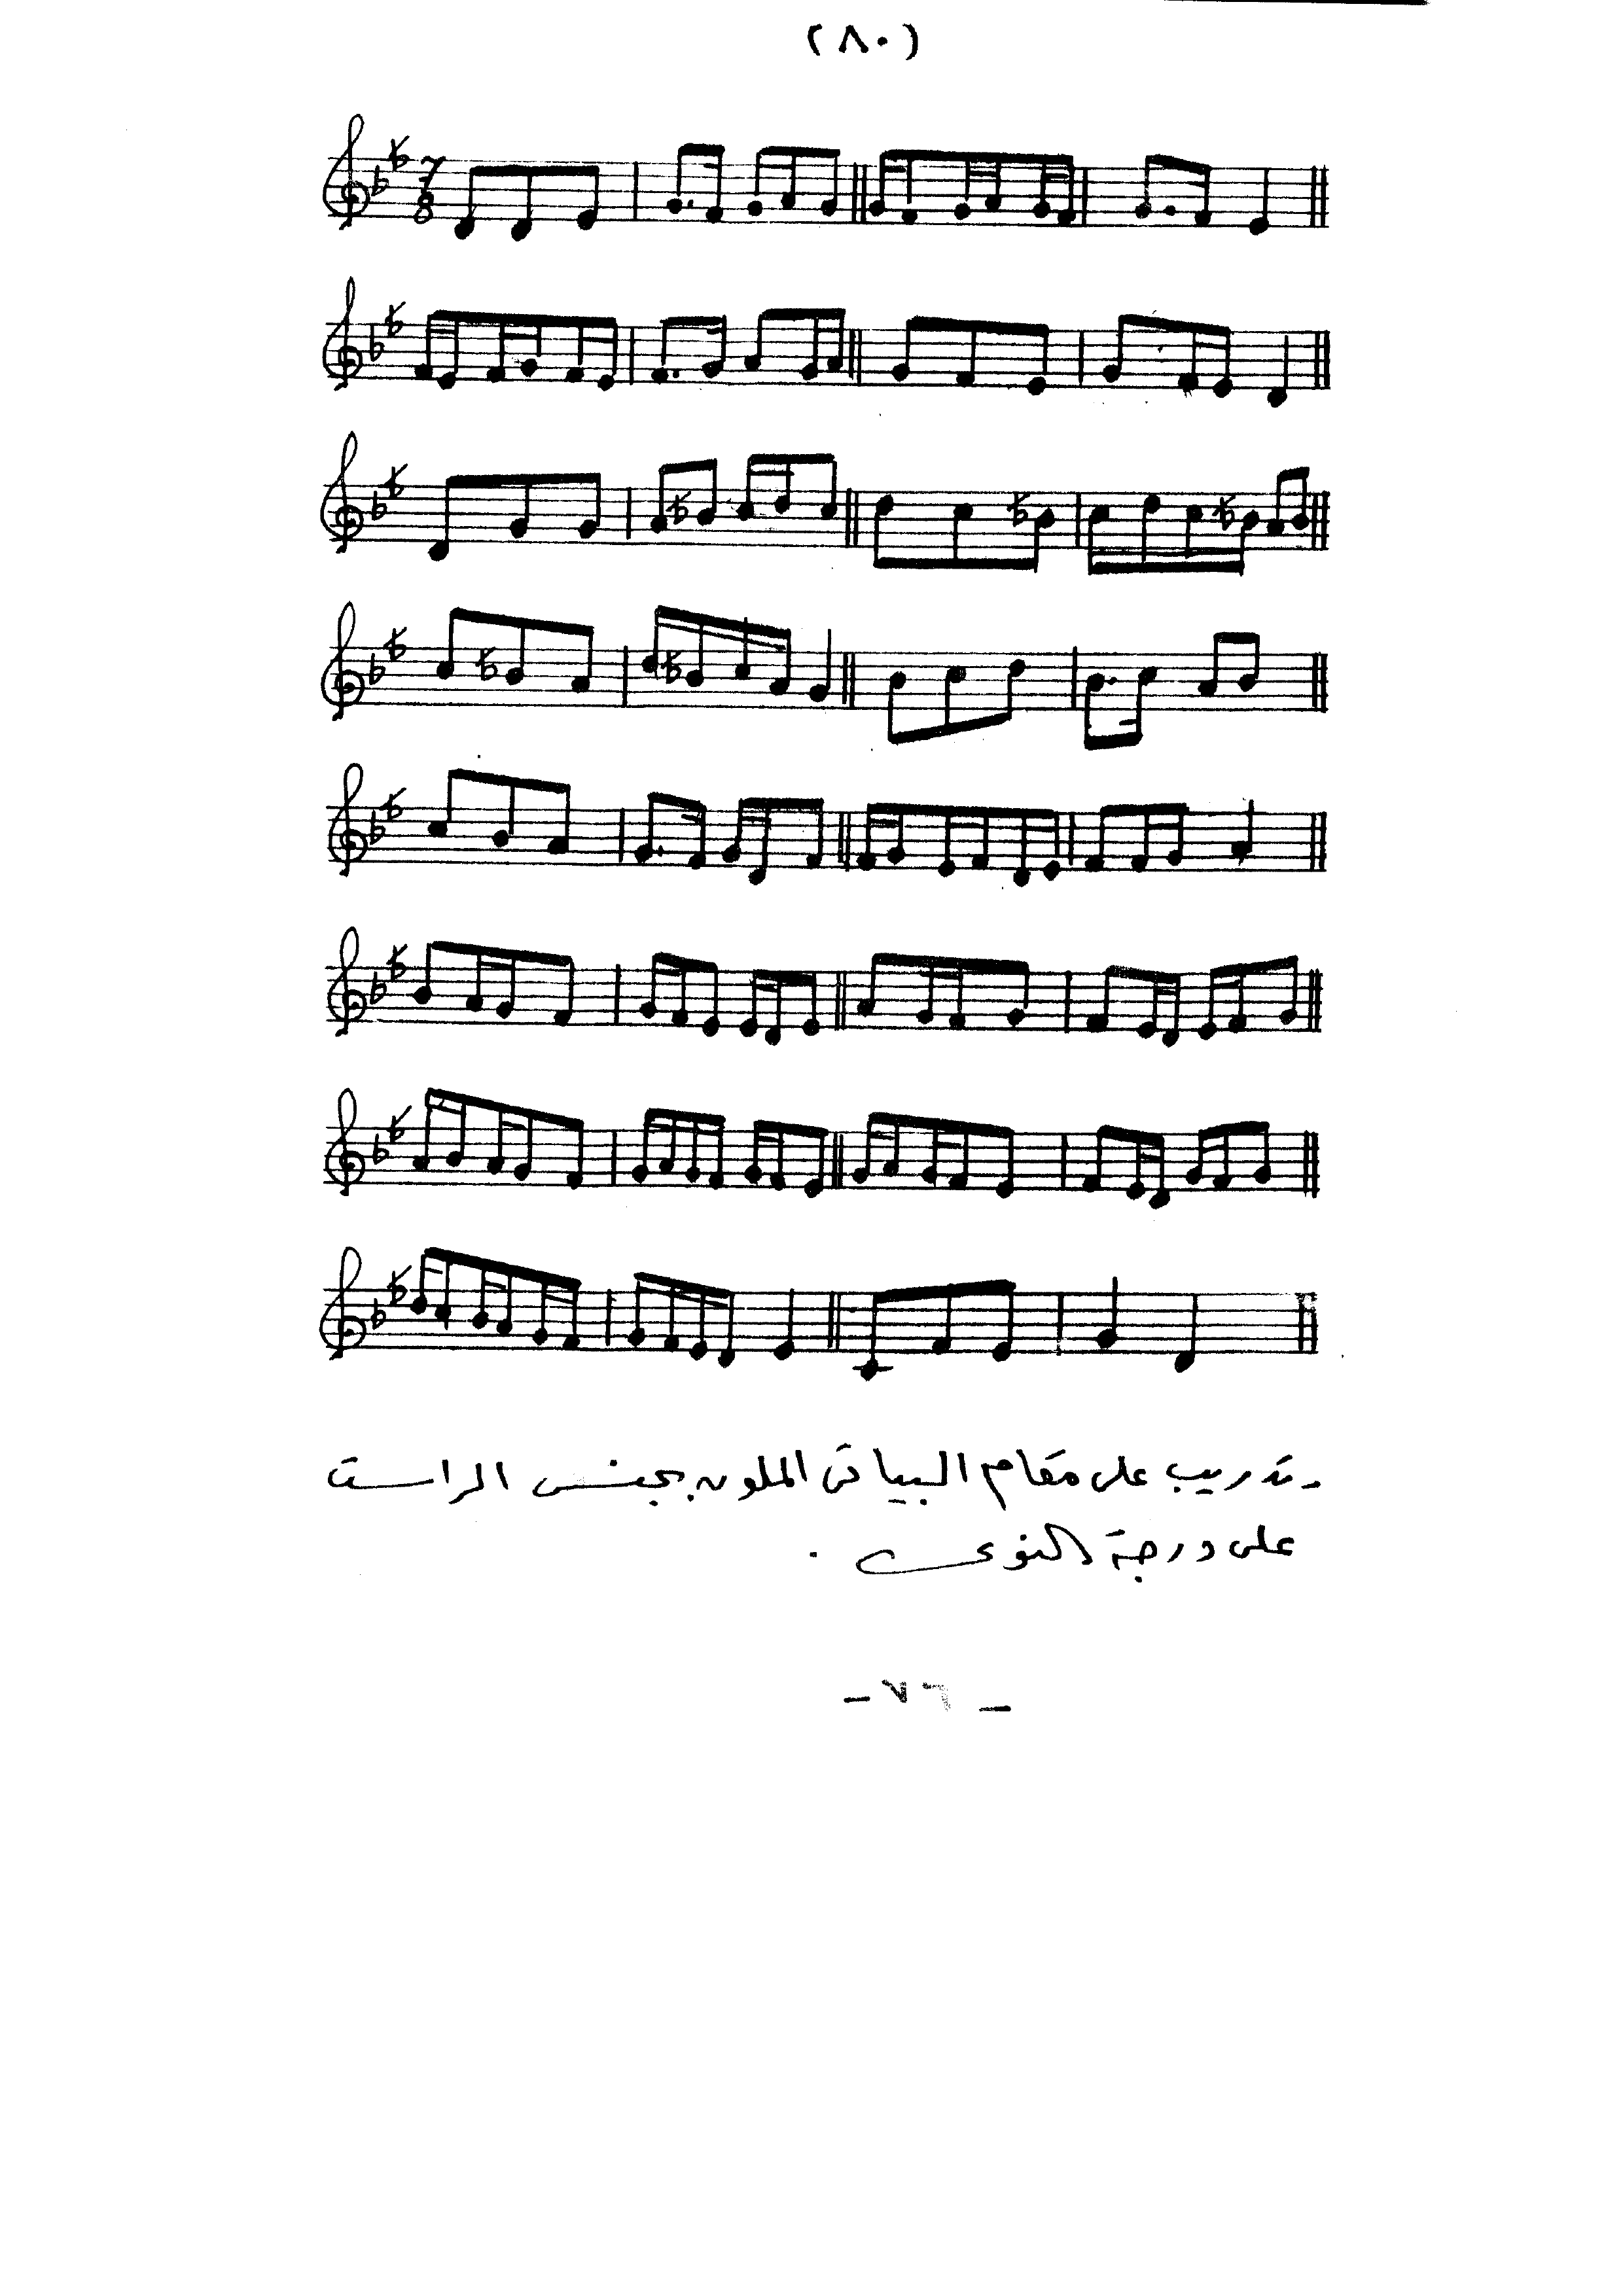 (٨٠)
7
8
- تدريب على مقام البياتى الملون بجنس الراست
على درجة النوى .
- ٧٦ -